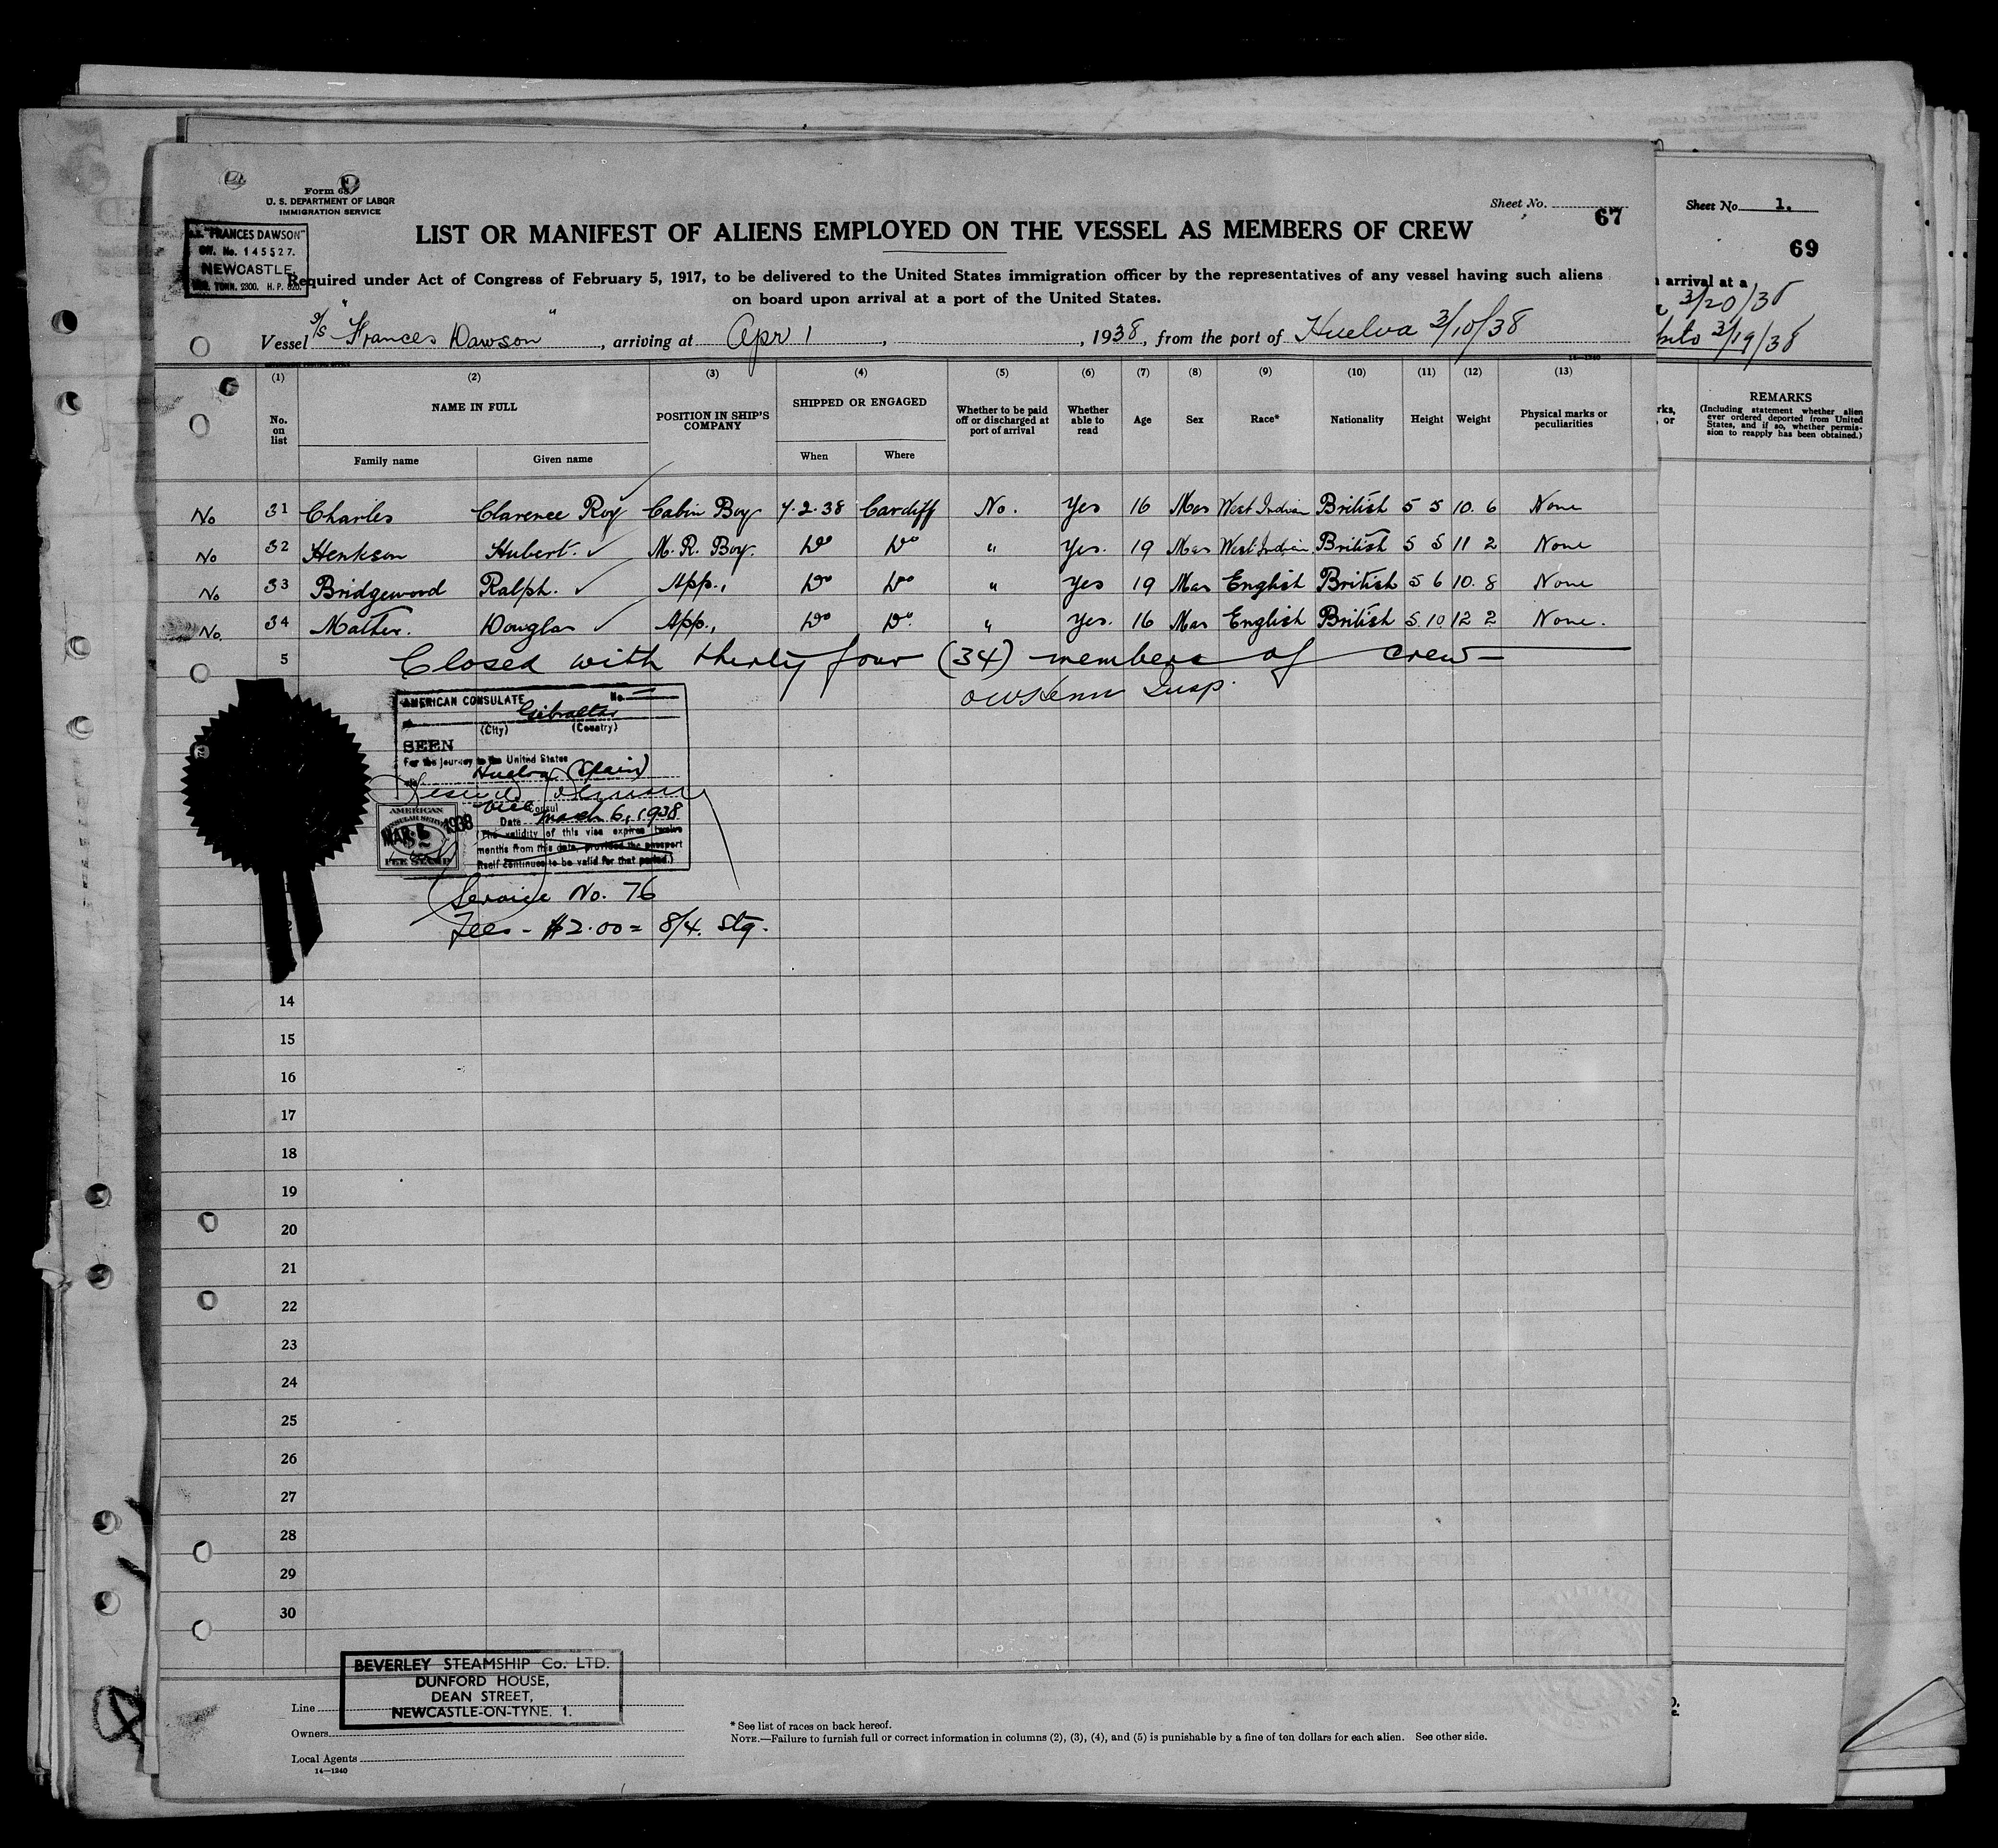 Form 68
U. S. DEPARTMENT OF LABOR
IMMIGRATION SERVICE
S.S. "FRANCES DAWSON"
Off. No. 145527.
NEWCASTLE
TONN. 2300. H. P.
Sheet No.
67
LIST OR MANIFEST OF ALIENS EMPLOYED ON THE VESSEL AS MEMBERS OF CREW
Required under Act of Congress of February 5, 1917, to be delivered to the United States immigration officer by the representatives of any vessel having such aliens
on board upon arrival at a port of the United States.
Vessel S/S "Frances Dawson", arriving at Apr 1, 1938, from the port of Huelva 3/10/38
14-1240
(1) (2) (3) (4) (5) (6) (7) (8) (9) (10) (11) (12) (13)
No. on list
NAME IN FULL
Family name Given name
POSITION IN SHIP'S COMPANY
SHIPPED OR ENGAGED
When Where
Whether to be paid off or discharged at port of arrival
Whether able to read
Age
Sex
Race*
Nationality
Height
Weight
Physical marks or peculiarities
No 31 Charles Clarence Roy Cabin Boy 7.2.38 Cardiff No. Yes 16 Mas West Indian British 5 5 10. 6 None
No 32 Henkson Hubert. M. R. Boy. Do Do " Yes. 19 Mas West Indian British 5 5 11 2 None
No 33 Bridgewood Ralph. App., Do Do " Yes 19 Mas English British 5 6 10. 8 None
No. 34 Mather. Douglas App., Do Do. " Yes. 16 Mas English British 5. 10 12 2 None.
5 Closed with thirty four (34) members of crew
Insp.
AMERICAN CONSULATE No.
Gibraltar
(City) (Country)
SEEN
For the journey to the United States
Huelva (Spain)
Vice Consul
Date March 6, 1938
(The validity of this visa expires twelve
months from this date, provided the passport
itself continues to be valid for that period.)
AMERICAN
CONSULAR SERVICE
MAR 1938
$2
FEE STAMP
Service No. 76
Fees - $2.00 = 8/4. Stg.
14
15
16
17
18
19
20
21
22
23
24
25
26
27
28
29
30
BEVERLEY STEAMSHIP Co. LTD.
DUNFORD HOUSE,
DEAN STREET,
NEWCASTLE-ON-TYNE. 1.
Line
Owners
Local Agents
14—1240
* See list of races on back hereof.
NOTE.—Failure to furnish full or correct information in columns (2), (3), (4), and (5) is punishable by a fine of ten dollars for each alien. See other side.
Sheet No. 1.
69
arrival at a
3/20/38
3/19/38
REMARKS
(Including statement whether alien
ever ordered deported from United
States, and if so, whether permis-
sion to reapply has been obtained.)